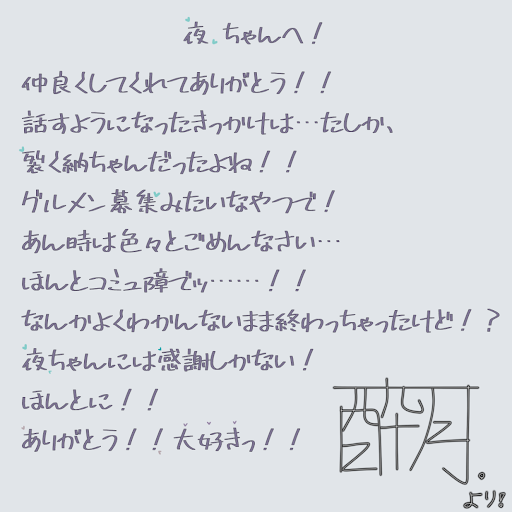 夜ちゃんへ!
仲良くしてくれてありがとう!!
話すようになったきっかけは…たしか、
裂く納ちゃんだったよね!!
グルメン募集みたいなやつで!
あん時は色々とごめんなさい…
ほんとコミュ障でッ……!!
なんかよくわかんないまま終わっちゃったけど!?
夜ちゃんには感謝しかない!
ほんとに!!
ありがとう!!大好きっ!!
酔月.
より!